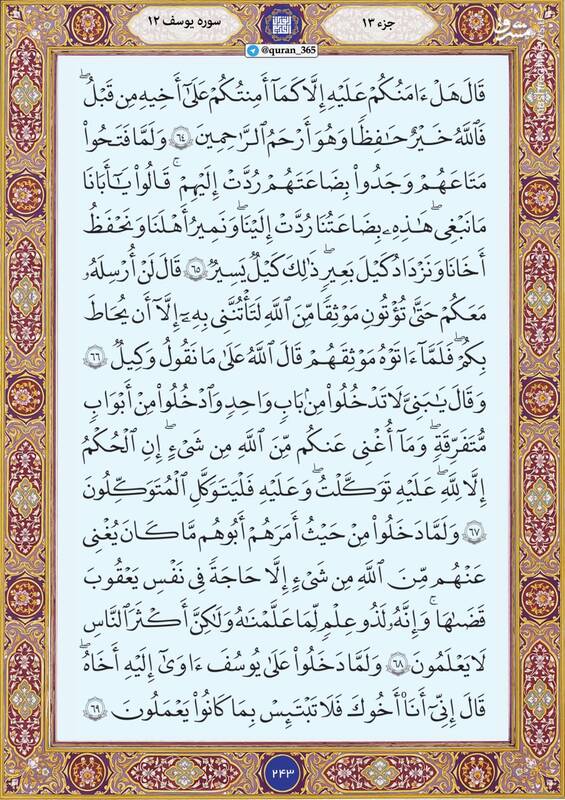 جزء ۱۳
سوره یوسف ۱۲
@quran_365
مشرق
قَالَ هَلْ ءَامَنُكُمْ عَلَيْهِ إِلَّا كَمَآ أَمِنتُكُمْ عَلَىٰٓ أَخِيهِ مِن قَبْلُ ۖ
فَٱللَّهُ خَيْرٌ حَـٰفِظًا ۖ وَهُوَ أَرْحَمُ ٱلرَّٰحِمِينَ ٦٤ وَلَمَّا فَتَحُوا۟
مَتَـٰعَهُمْ وَجَدُوا۟ بِضَـٰعَتَهُمْ رُدَّتْ إِلَيْهِمْ ۖ قَالُوا۟ يَـٰٓأَبَانَا
مَا نَبْغِى ۖ هَـٰذِهِۦ بِضَـٰعَتُنَا رُدَّتْ إِلَيْنَا ۖ وَنَمِيرُ أَهْلَنَا وَنَحْفَظُ
أَخَانَا وَنَزْدَادُ كَيْلَ بَعِيرٍ ۖ ذَٰلِكَ كَيْلٌ يَسِيرٌ ٦٥ قَالَ لَنْ أُرْسِلَهُۥ
مَعَكُمْ حَتَّىٰ تُؤْتُونِ مَوْثِقًا مِّنَ ٱللَّهِ لَتَأْتُنَّنِى بِهِۦٓ إِلَّآ أَن يُحَاطَ
بِكُمْ ۖ فَلَمَّآ ءَاتَوْهُ مَوْثِقَهُمْ قَالَ ٱللَّهُ عَلَىٰ مَا نَقُولُ وَكِيلٌ ٦٦
وَقَالَ يَـٰبَنِىَّ لَا تَدْخُلُوا۟ مِنۢ بَابٍ وَٰحِدٍ وَٱدْخُلُوا۟ مِنْ أَبْوَٰبٍ
مُّتَفَرِّقَةٍ ۖ وَمَآ أُغْنِى عَنكُم مِّنَ ٱللَّهِ مِن شَىْءٍ ۖ إِنِ ٱلْحُكْمُ
إِلَّا لِلَّهِ ۖ عَلَيْهِ تَوَكَّلْتُ ۖ وَعَلَيْهِ فَلْيَتَوَكَّلِ ٱلْمُتَوَكِّلُونَ
٦٧ وَلَمَّا دَخَلُوا۟ مِنْ حَيْثُ أَمَرَهُمْ أَبُوهُم مَّا كَانَ يُغْنِى
عَنْهُم مِّنَ ٱللَّهِ مِن شَىْءٍ إِلَّا حَاجَةً فِى نَفْسِ يَعْقُوبَ
قَضَىٰهَا ۚ وَإِنَّهُۥ لَذُو عِلْمٍ لِّمَا عَلَّمْنَـٰهُ وَلَـٰكِنَّ أَكْثَرَ ٱلنَّاسِ
لَا يَعْلَمُونَ ٦٨ وَلَمَّا دَخَلُوا۟ عَلَىٰ يُوسُفَ ءَاوَىٰٓ إِلَيْهِ أَخَاهُ ۖ
قَالَ إِنِّىٓ أَنَا۠ أَخُوكَ فَلَا تَبْتَئِسْ بِمَا كَانُوا۟ يَعْمَلُونَ ٦٩
۲۴۳